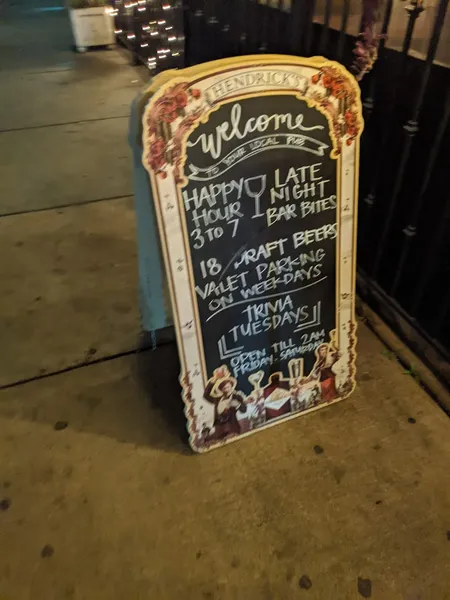 HENDRICK'S
Welcome
TO YOUR LOCAL PUB
HAPPY
HOUR
3 TO 7
LATE
NIGHT
BAR BITES
18 DRAFT BEERS
VALET PARKING
ON WEEKDAYS
TRIVIA
TUESDAYS
OPEN TILL 2AM
FRIDAY-SATURDAY